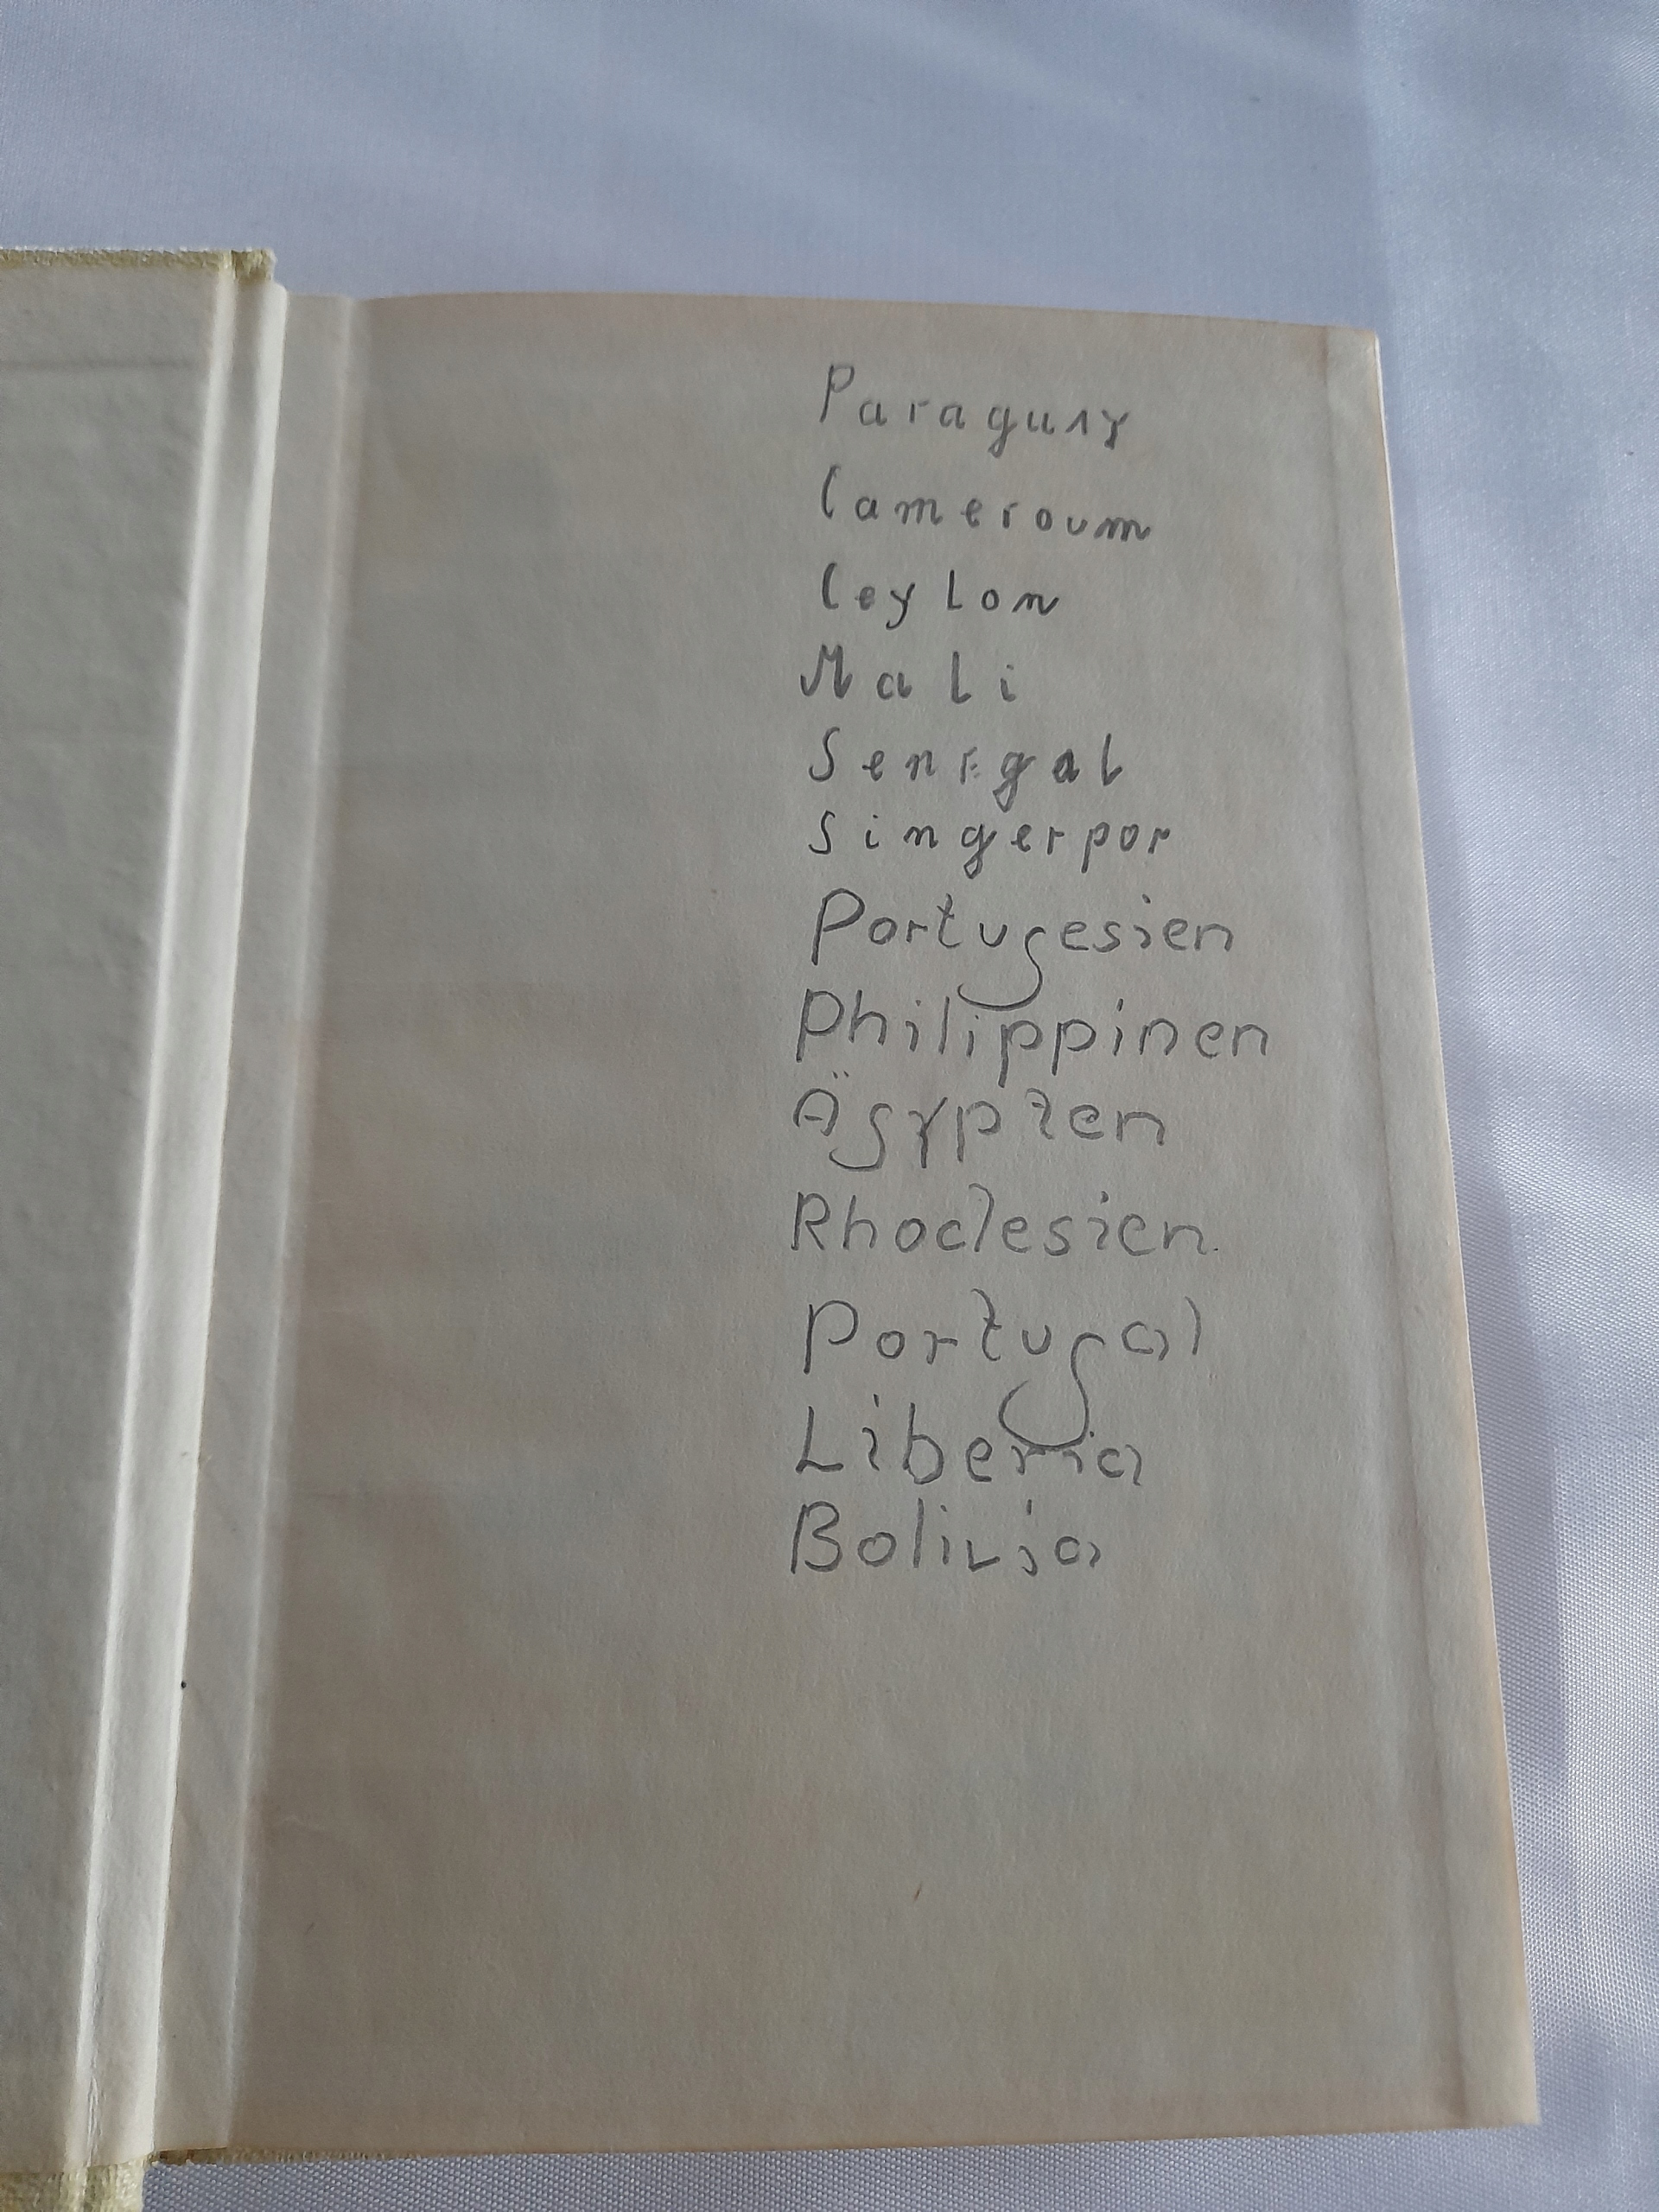 Paraguay
Cameroum
Ceylon
Mali
Senegal
Singerpor
Portugesien
Philippinen
Ägypten
Rhodesien
Portugal
Liberia
Bolivia